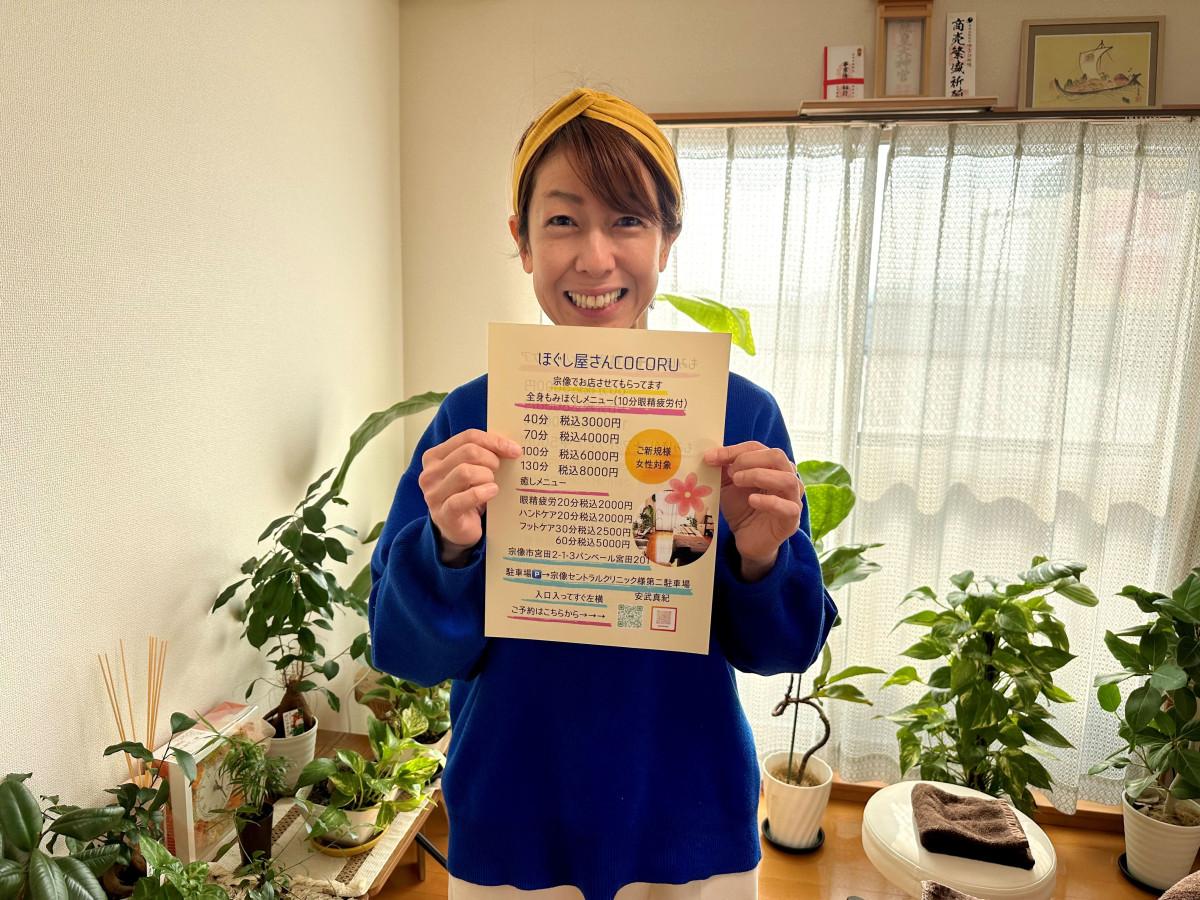 商売繁盛祈願
ほぐし屋さんCOCORU
宗像でお店させてもらってます
全身もみほぐしメニュー(10分眼精疲労付)
40分 税込3000円
70分 税込4000円
100分 税込6000円
130分 税込8000円
ご新規様
女性対象
癒しメニュー
眼精疲労20分税込2000円
ハンドケア20分税込2000円
フットケア30分税込2500円
60分税込5000円
宗像市宮田2-1-3パンベール宮田201
駐車場🅿→宗像セントラルクリニック様第二駐車場
入口入ってすぐ左横 安武真紀
ご予約はこちらから→→→